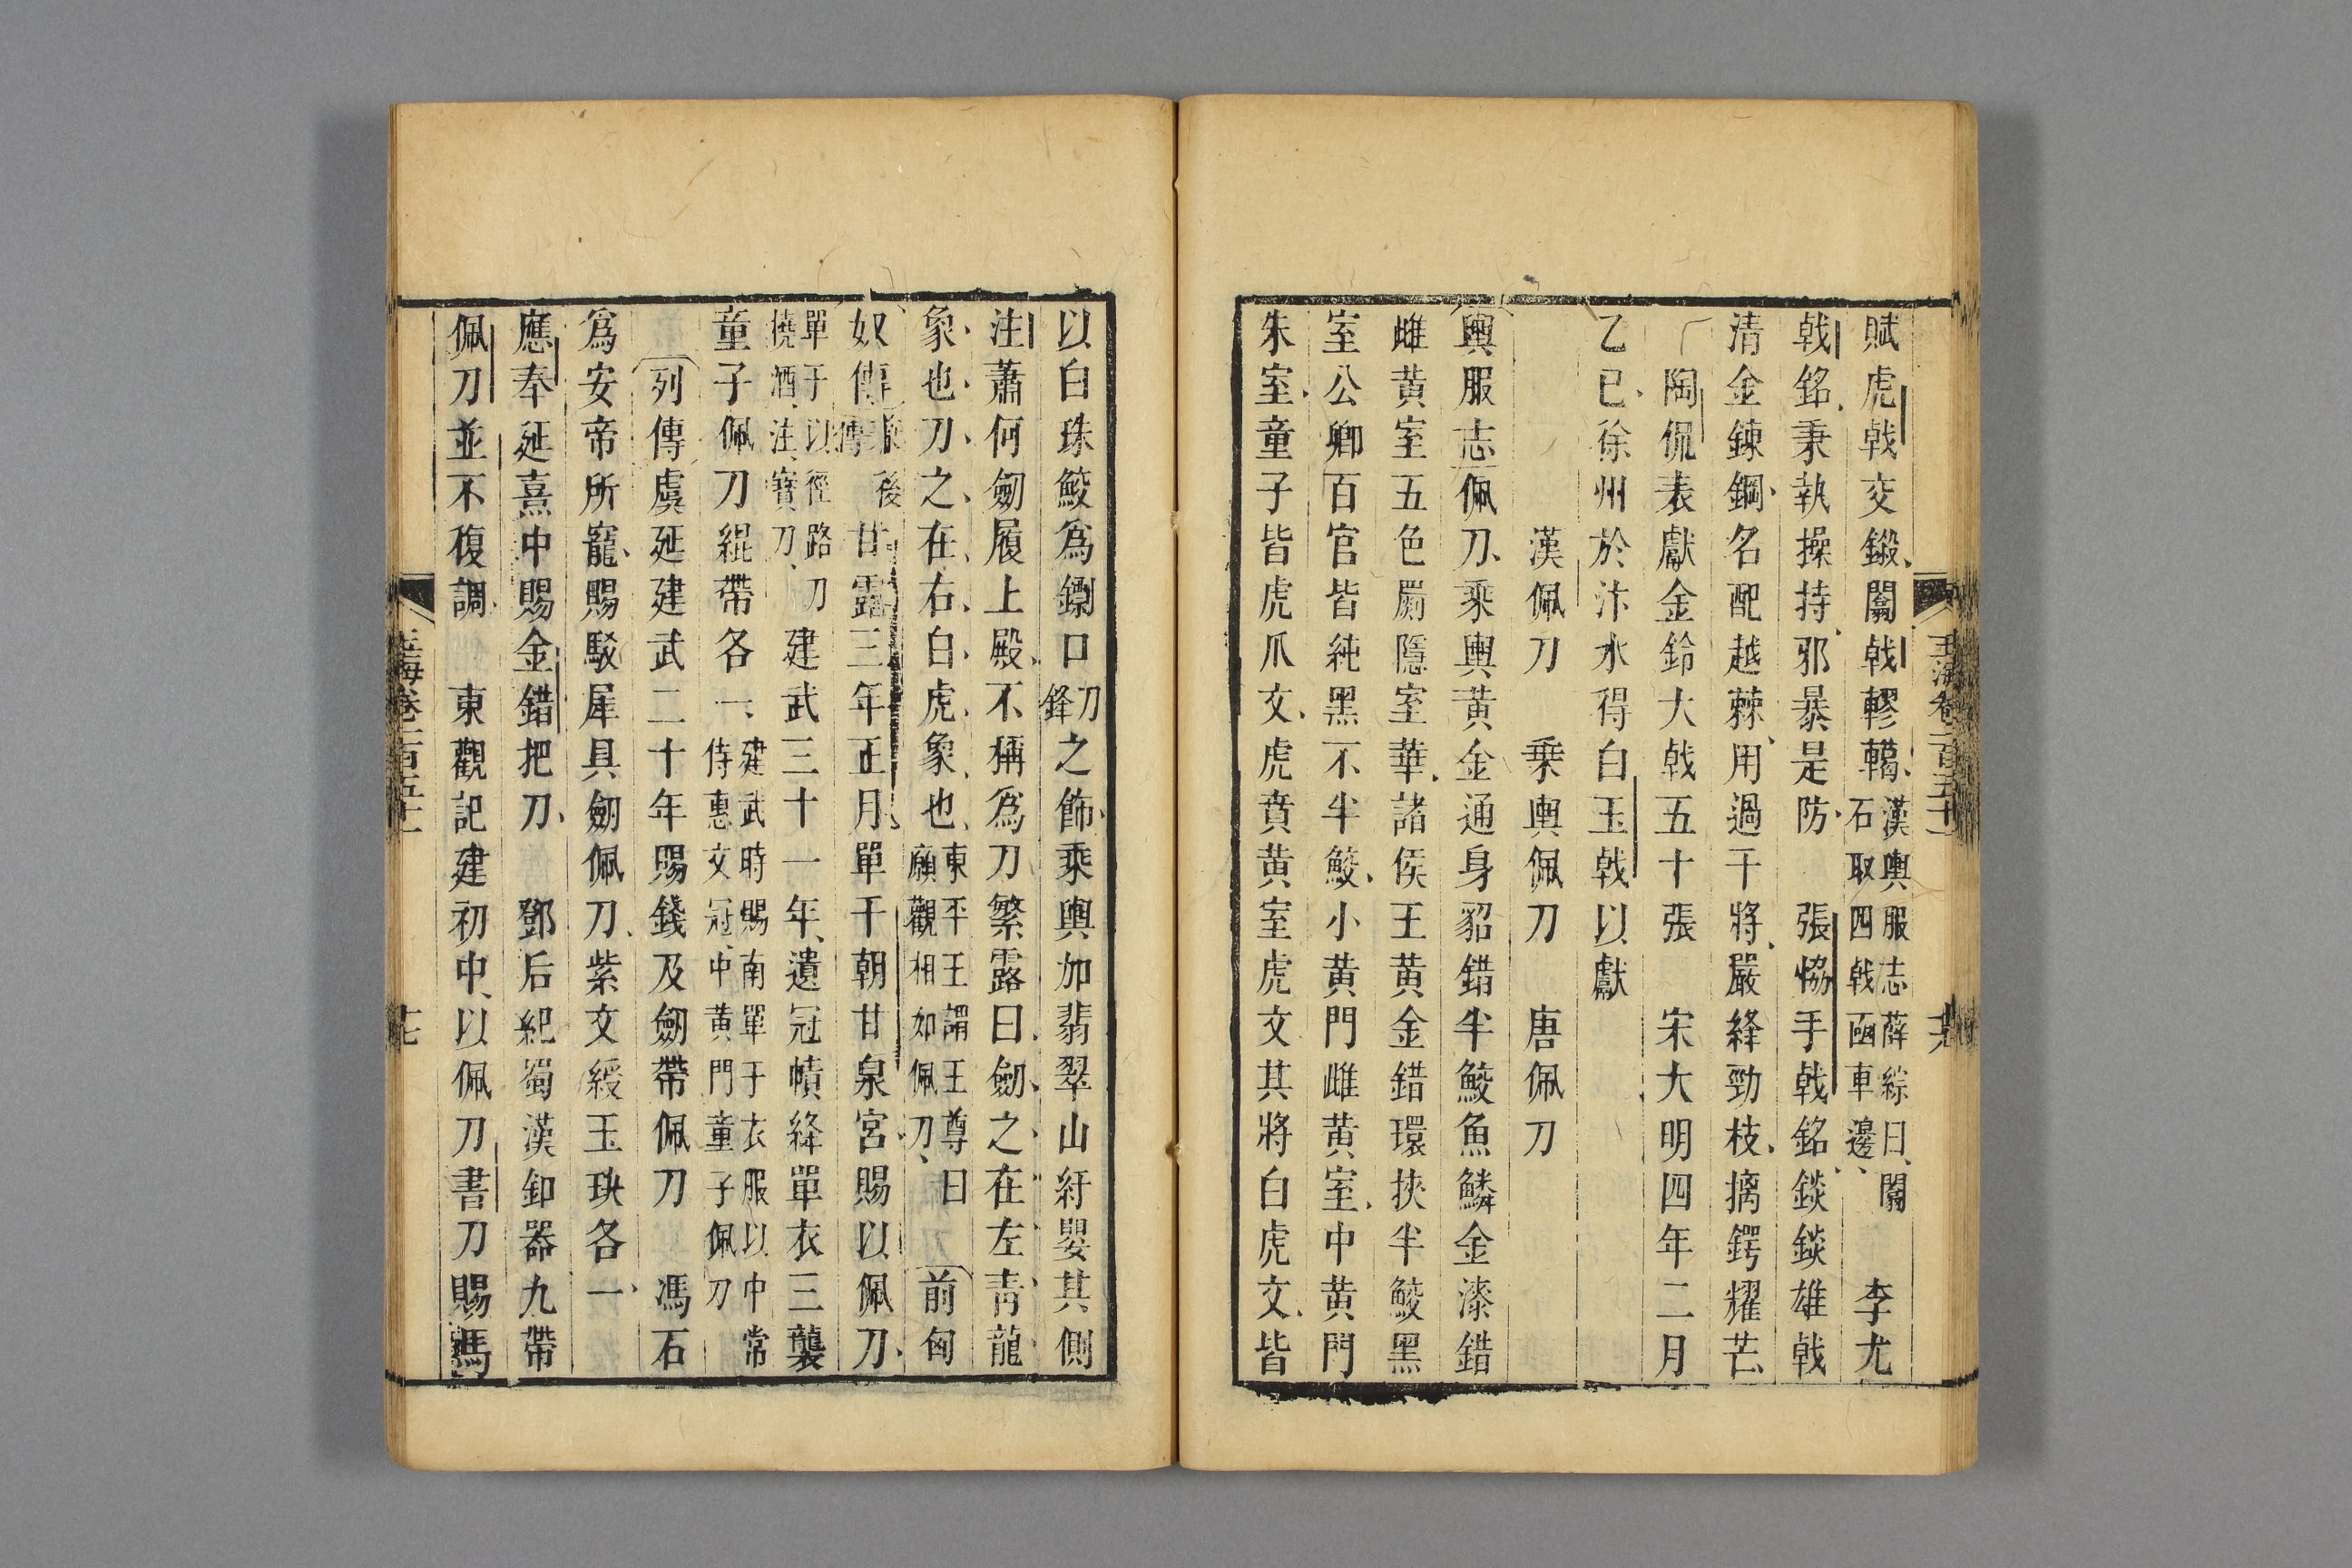 玉海卷一百五十一
賦虎戟交鎩闟戟轇轕漢輿服志薛綜曰闟石取四戟凾車邊李尤
戟銘秉執操持邪暴是防張恊手戟銘錟錟雄戟
清金鍊鋼名配越棘用過干將嚴絳勁枝摛鍔耀芒
陶侃表獻金鈴大戟五十張宋大明四年二月
乙巳徐州於汴水得白玉戟以獻
漢佩刀乗輿佩刀唐佩刀
輿服志佩刀乘輿黃金通身貂錯半鮫魚鱗金漆錯
雌黃室五色罽隱室華諸侯王黃金錯環挾半鮫黑
室公卿百官皆純黑不半鮫小黃門雌黃室中黃門
朱室童子皆虎爪文虎賁黃室虎文其將白虎文皆
以白珠鮫為鏢口刀鋒之飾乘輿加翡翠山紆嬰其側
注蕭何劒履上殿不稱為刀繁露曰劒之在左青龍
象也刀之在右白虎象也東平王謂王尊曰願觀相如佩刀前匈
奴傳後傳甘露三年正月單于朝甘泉宮賜以佩刀
單于以徑路刀撓酒注寶刀建武三十一年遺冠幘絳單衣三襲
童子佩刀緄帶各一建武時賜南單于衣服以中常侍惠文冠中黃門童子佩刀
列傳虞延建武二十年賜錢及劒帶佩刀馮石
為安帝所寵賜駁犀具劒佩刀紫文綬玉玦各一
應奉延熹中賜金錯把刀鄧后紀蜀漢釦器九帶
佩刀並不復調東觀記建初中以佩刀書刀賜馬
玉海卷一百五十一
十七